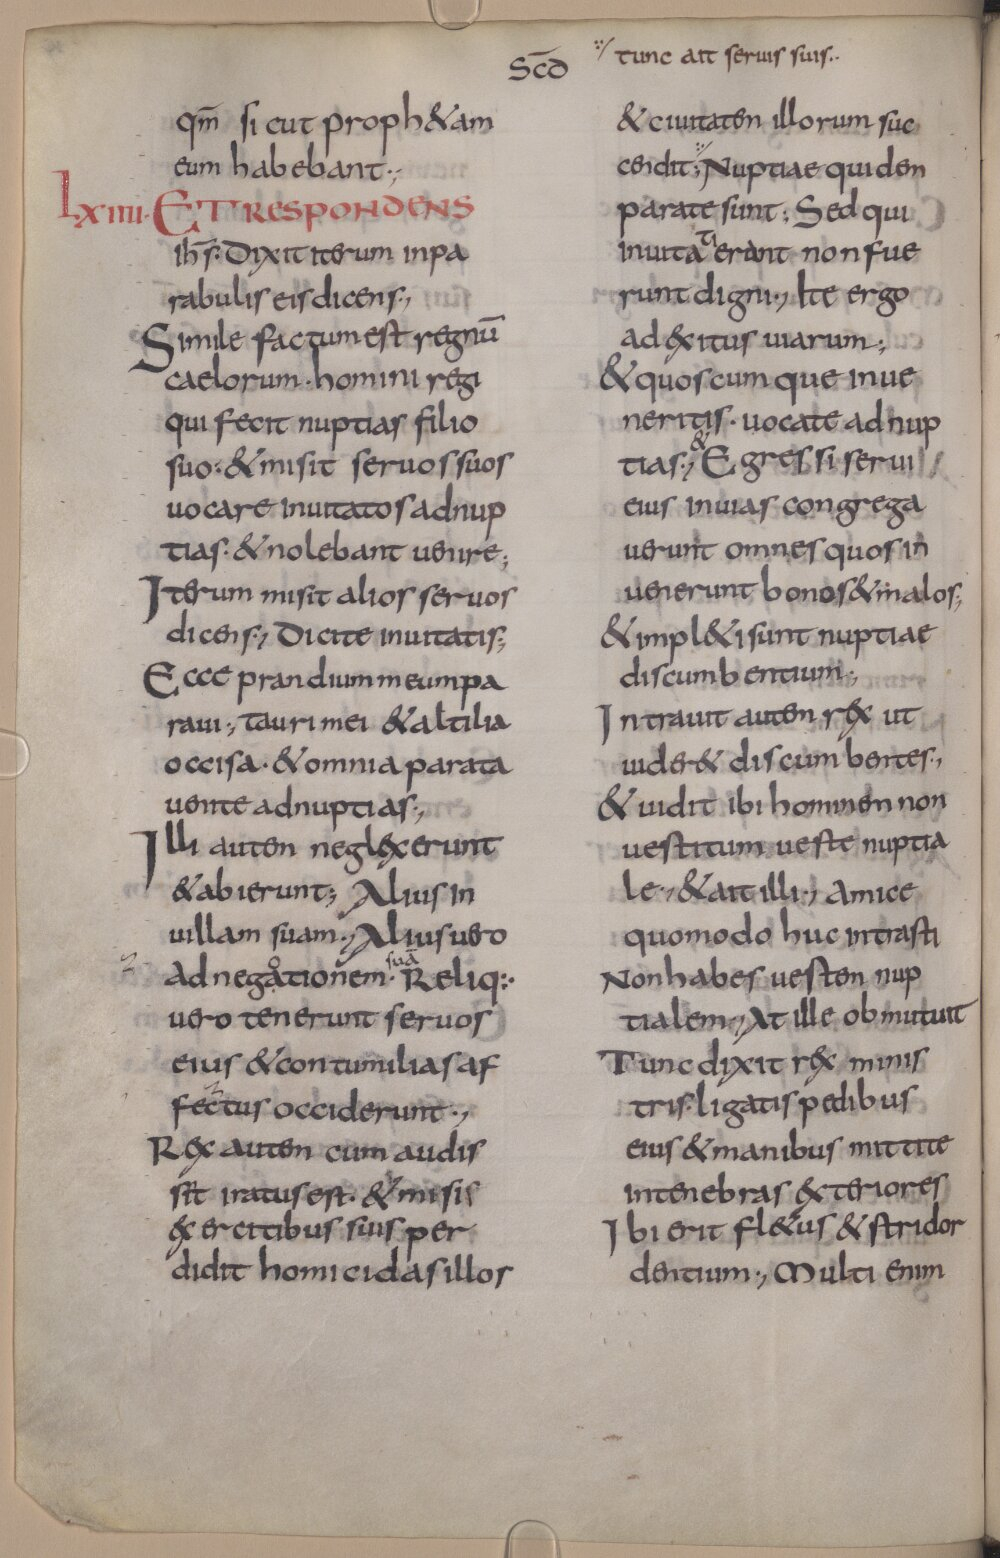 Scd
tunc ait seruis suis..
qm sicut proph&am
eum habebant.,
Lxiiii. ET RESPONDENS
ihs. Dixit iterum inpa
rabulis eis dicens.,
Simile factum est regnū
caelorum. homini regi
qui fecit nuptias filio
suo. & misit seruos suos
uocare inuitatos adnup
tias. & nolebant uenire;
Iterum misit alios seruos
dicens., Dicite inuitatis;
Ecce prandium meum pa
raui; tauri mei & altilia
occisa. & omnia parata
uenite adnuptias.,
Illi autem neglexerunt
& abierunt; Alius in
uillam suam., Alius uero
suā
ad negotionem. Reliq:.
uero tenerunt seruos
eius & contumilias af
fectus occiderunt.,
Rex autem cum audis
sit iratus est. & misis
exercitibus suis per
didit homicidas illos
& ciuitatem illorum suc
cendit; Nuptiae quidem
parate sunt; Sed qui
ti
inuita erant non fue
runt digni., Ite ergo
ad exitus uiarum;
& quoscumque inue
neritis. uocate ad nup
&
tias., Egressi serui
eius inuias congrega
uerunt omnes quos in
uenerunt bonos & malos;
& impl&i sunt nuptiae
discumbentium.,
Intrauit autem rex ut
uider& discumbentes.,
& uidit ibi hominem non
uestitum ueste nuptia
le., & ait illi., Amice
quomodo huc intrasti
Non habes uestem nup
tialem., At ille obmutuit
Tunc dixit rex minis
tris. ligatis pedibus
eius & manibus mittite
intenebras exteriores
Ibi erit fl&us & stridor
dentium., Multi enim